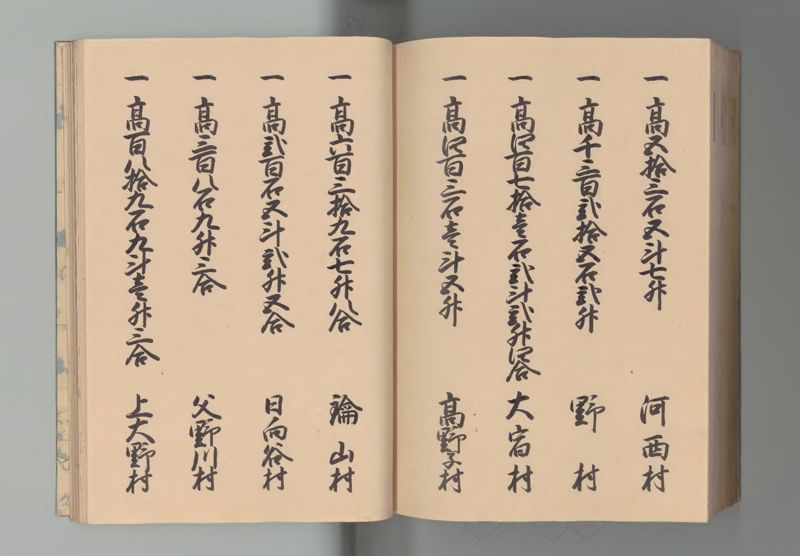 一 高五拾三石五斗七升 河西村
一 高千三百弐拾五石弐升 野村
一 高四百七拾壱石弐斗弐升四合 大宿村
一 高四百三石壱斗五升 高野子村
一 高六百三拾九石七升八合 山村
一 高弐百石五斗弐升五合 日向谷村
一 高三百八石九升三合 父野川村
一 高百八拾九石九斗壱升三合 上大野村